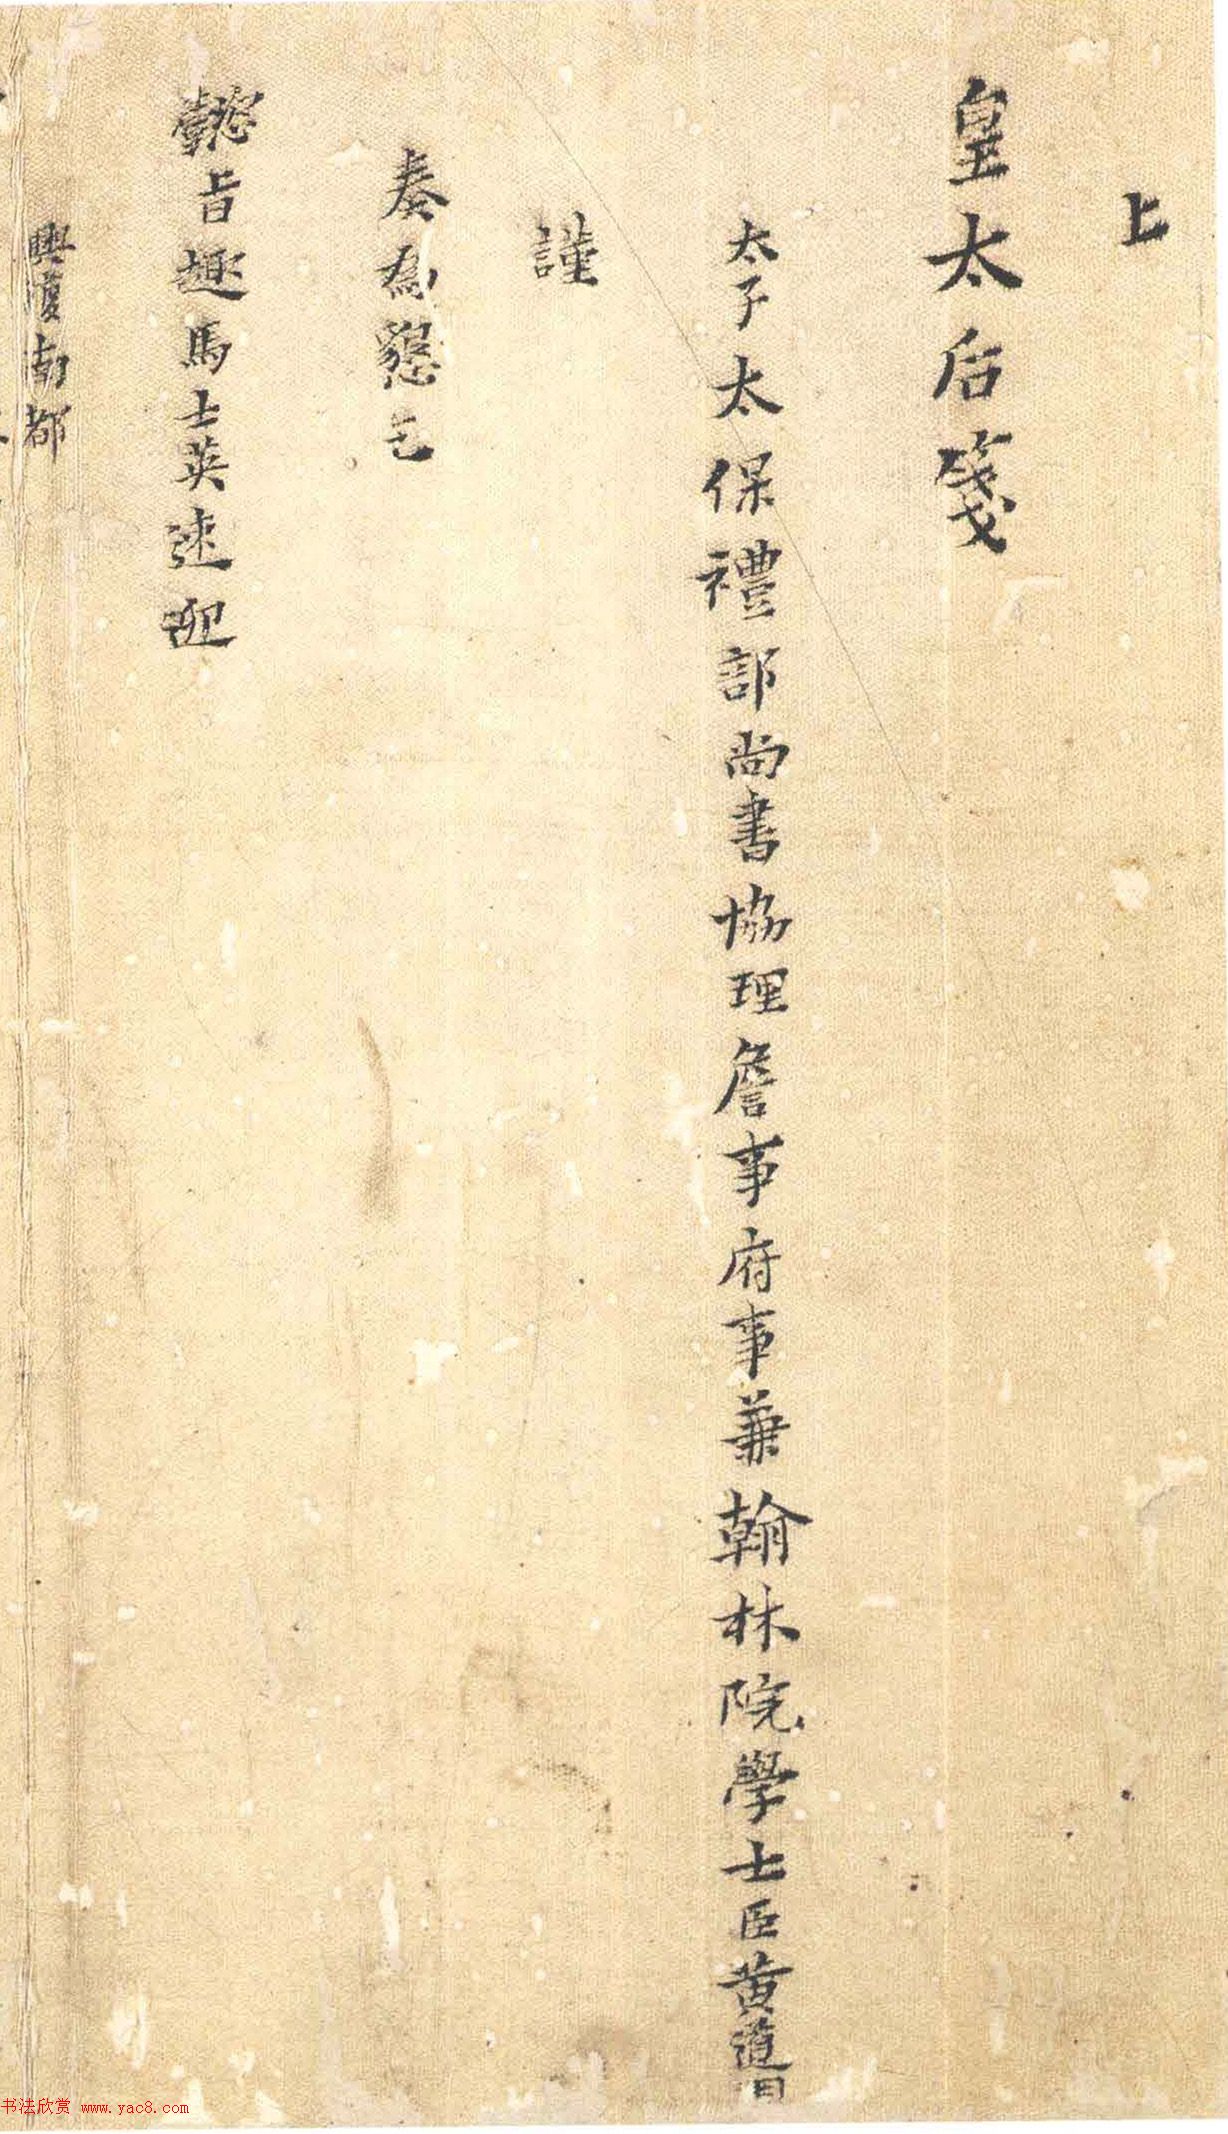 上
皇太后箋
太子太保禮部尚書協理詹事府事兼翰林院學士臣黄道周
謹
奏為懇乞
懿旨趣馬士英速迎
興復南都
书法欣赏 www.yac8.com